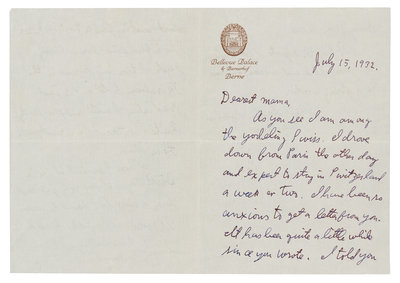 Bellevue Palace
& Bernerhof
Berne
July 15, 1932.
Dearest mama,
As you see I am among
the yodeling Swiss. I drove
down from Paris the other day
and expect to stay in Switzerland
a week or two. I have been so
anxious to get a letter from you.
It has been quite a little while
since you wrote. I told you